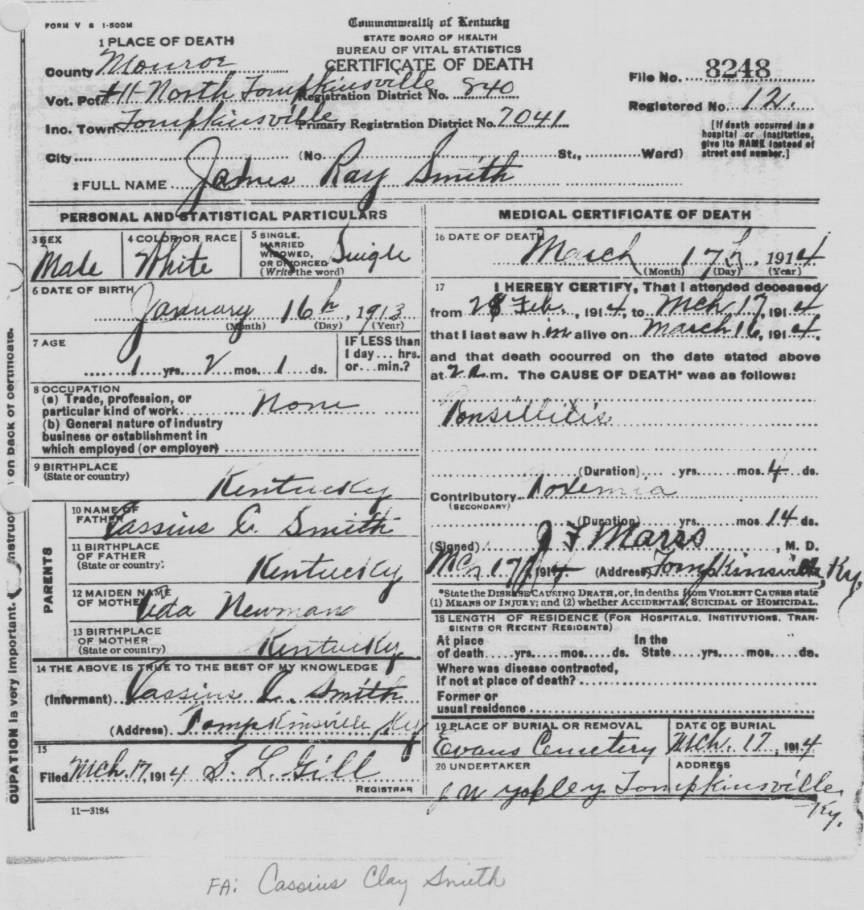 FORM V S 1-500M
Commonwealth of Kentucky
STATE BOARD OF HEALTH
BUREAU OF VITAL STATISTICS
CERTIFICATE OF DEATH
1 PLACE OF DEATH
County Monroe
Vot. Pct #11 North Tompkinsville Registration District No. 840
Inc. Town Tompkinsville Primary Registration District No. 7041
File No. 8248
Registered No. 12.
[If death occurred in a
hospital or institution,
give its NAME instead of
street and number.]
City (No. St., Ward)
2 FULL NAME James Ray Smith
PERSONAL AND STATISTICAL PARTICULARS
3 SEX
Male
4 COLOR OR RACE
White
5 SINGLE,
MARRIED
WIDOWED,
OR DIVORCED
(Write the word)
Single
6 DATE OF BIRTH
January 16th, 1913
(Month) (Day) (Year)
7 AGE
1 yrs. 2 mos. 1 ds.
IF LESS than
1 day... hrs.
or... min.?
8 OCCUPATION
(a) Trade, profession, or
particular kind of work None
(b) General nature of industry
business or establishment in
which employed (or employer)
9 BIRTHPLACE
(State or country)
Kentucky
PARENTS
10 NAME OF
FATHER Cassius C. Smith
11 BIRTHPLACE
OF FATHER
(State or country)
Kentucky
12 MAIDEN NAME
OF MOTHER Newman
13 BIRTHPLACE
OF MOTHER
(State or country)
Kentucky
14 THE ABOVE IS TRUE TO THE BEST OF MY KNOWLEDGE
(Informant) Cassius C. Smith
(Address) Tompkinsville, Ky
15
Filed Mch. 17, 1914 S. L. Gill
REGISTRAR
11—3184
MEDICAL CERTIFICATE OF DEATH
16 DATE OF DEATH
March 17th, 1914
(Month) (Day) (Year)
17 I HEREBY CERTIFY, That I attended deceased
from 28 Feb., 1914, to Mch 17, 1914
that I last saw him alive on March 16, 1914.
and that death occurred on the date stated above
at 2 a.m. The CAUSE OF DEATH* was as follows:
Tonsillitis
(Duration) yrs. mos. 4 ds.
Contributory Toxemia
(SECONDARY)
(Duration) yrs. mos. 14 ds.
(Signed) J F Marrs, M. D.
Mch 17, 1914 (Address) Tompkinsville, Ky.
*State the DISEASE CAUSING DEATH, or, in deaths from VIOLENT CAUSES state
(1) MEANS OF INJURY; and (2) whether ACCIDENTAL, SUICIDAL or HOMICIDAL.
18 LENGTH OF RESIDENCE (FOR HOSPITALS, INSTITUTIONS, TRAN-
SIENTS OR RECENT RESIDENTS)
At place In the
of death yrs. mos. ds. State yrs. mos. ds.
Where was disease contracted,
if not at place of death?
Former or
usual residence
19 PLACE OF BURIAL OR REMOVAL
Evans Cemetery
DATE OF BURIAL
Mch. 17, 1914
20 UNDERTAKER
J W Yokley
ADDRESS
Tompkinsville,
Ky.
OUPATION is very important.
on back of certificate.
FA: Cassius Clay Smith